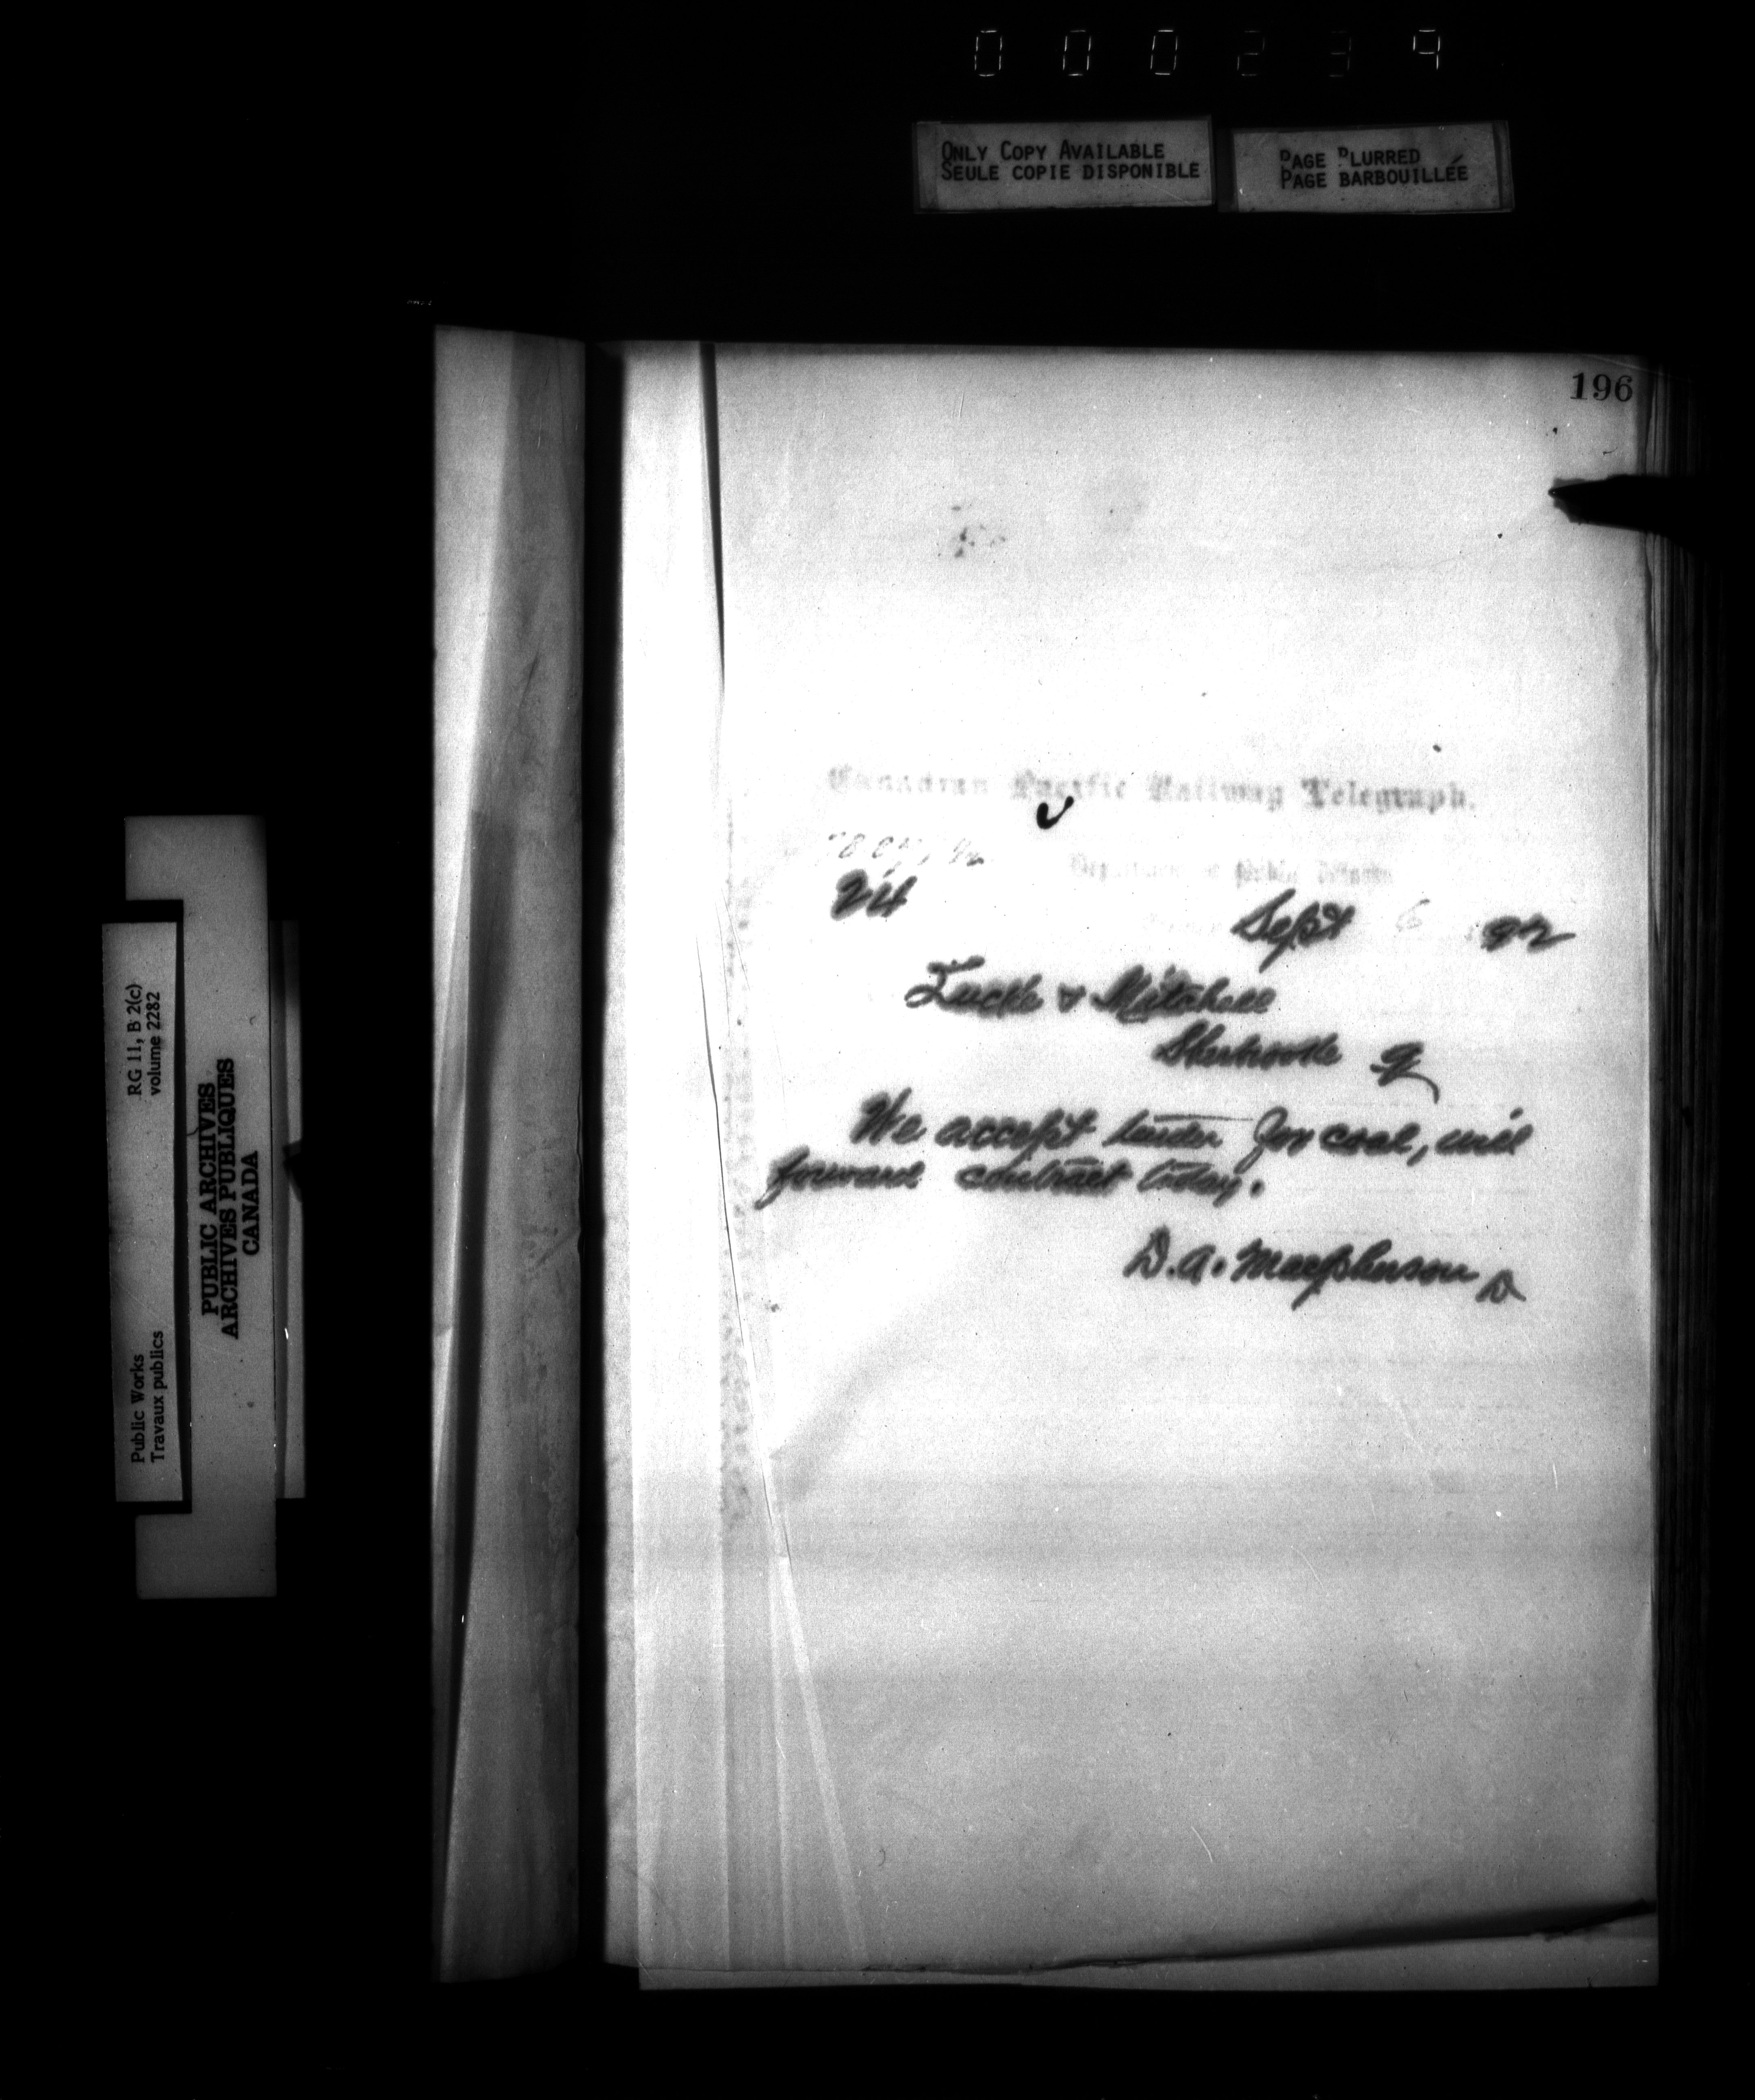 000239
ONLY COPY AVAILABLE
SEULE COPIE DISPONIBLE
PAGE BLURRED
PAGE BARBOUILLÉE
196
Canadian Pacific Railway Telegraph.
Department of Public Works
24
Sept 6 92
Lucke & Mitchell
Sherbrooke Q
We accept tender for coal, will
forward contract today.
D.A. Macpherson
RG 11, B 2(c)
volume 2282
Public Works
Travaux publics
PUBLIC ARCHIVES
ARCHIVES PUBLIQUES
CANADA